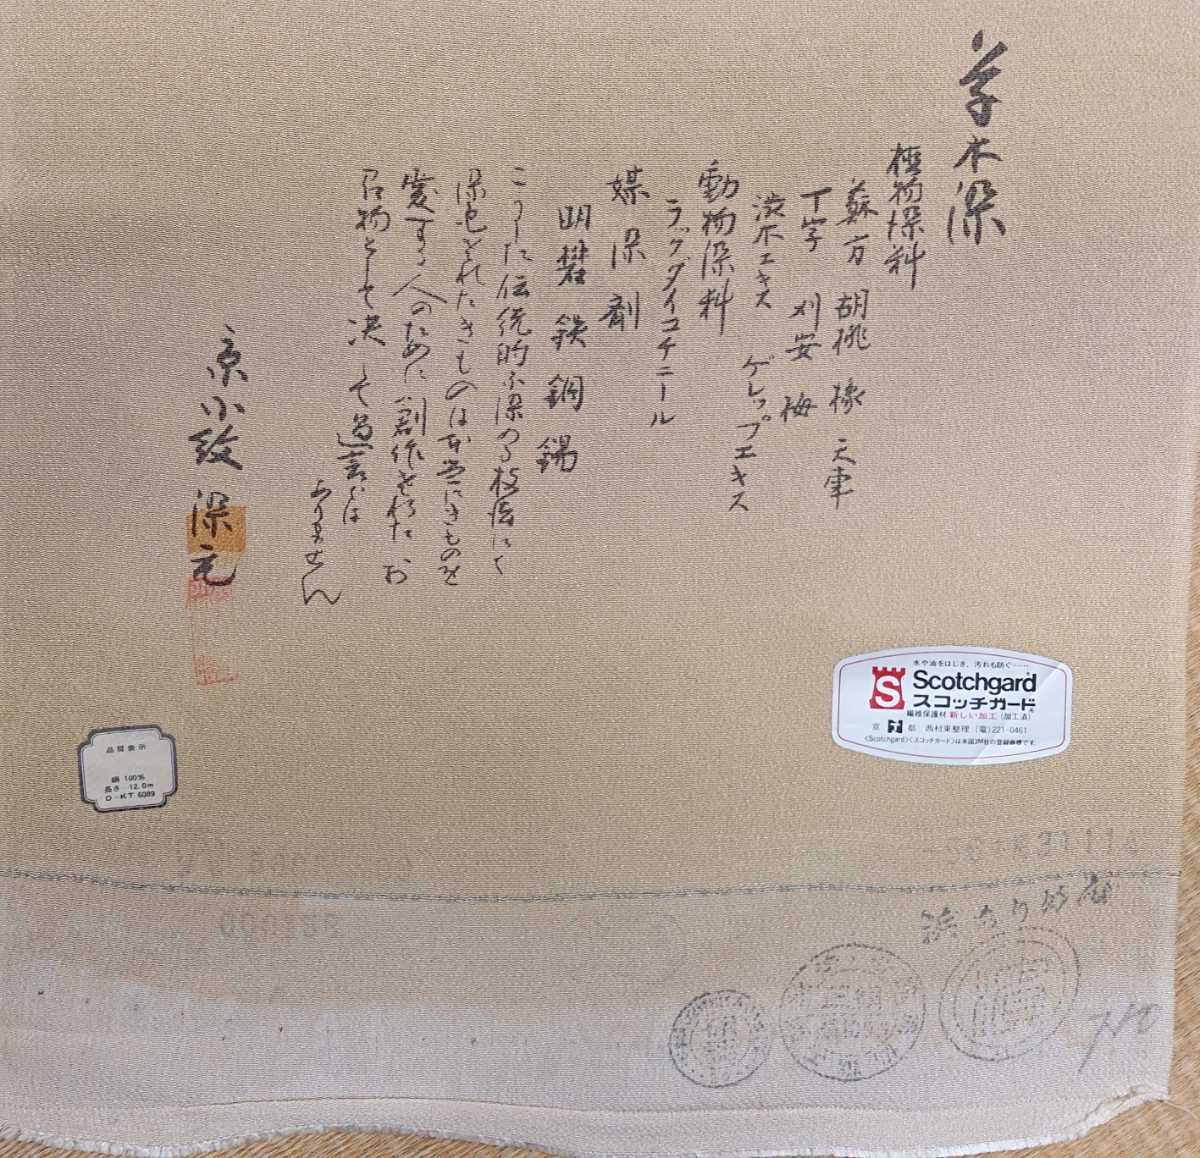 草木染
植物染料
蘇方 胡桃 橡 天車
丁字 刈安 梅
渋木エキス ゲレップエキス
動物染料
ラックダイコチニール
媒染剤
明礬 鉄 銅 錫
こうした伝統的な染の技法にて
染色されたきものは本当にきものを
愛する人のために創作された お
召物として決して過言では
ありません
京小紋 染元
水や油をはじき、汚れも防ぐ……
S Scotchgard
スコッチガード
繊維保護材 新しい加工 (加工済)
京都 西村東整理 (電)221-0461
〈Scotchgard〉〈スコッチガード〉は米国3M社の登録商標です。
品質表示
絹 100%
長さ 12.0m
O-KT 6089
710